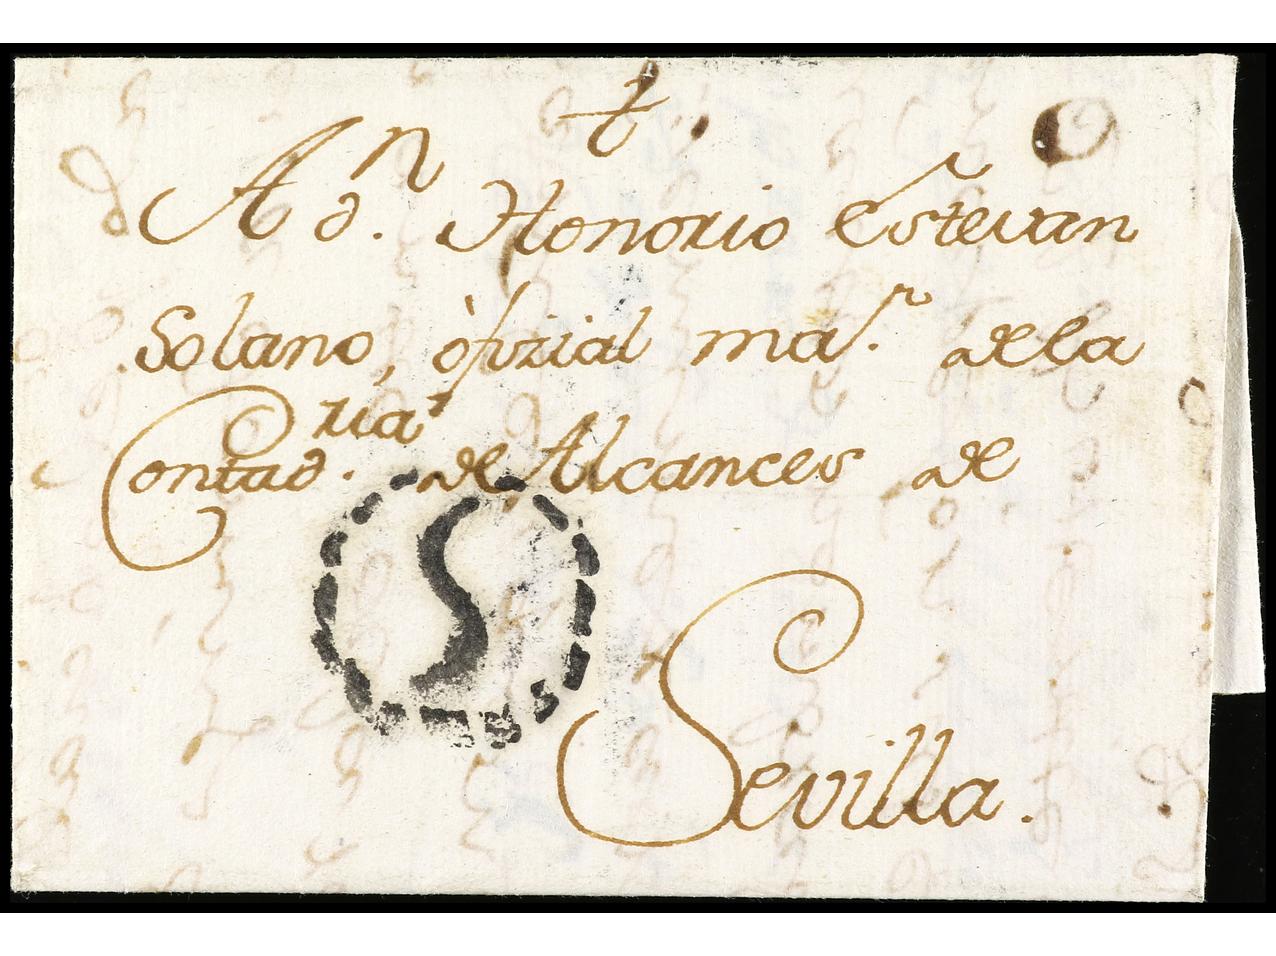 A d.n Honorio Estevan
Solano, ofizial ma.r de la
Contad.ria de Alcances de
S
Sevilla.